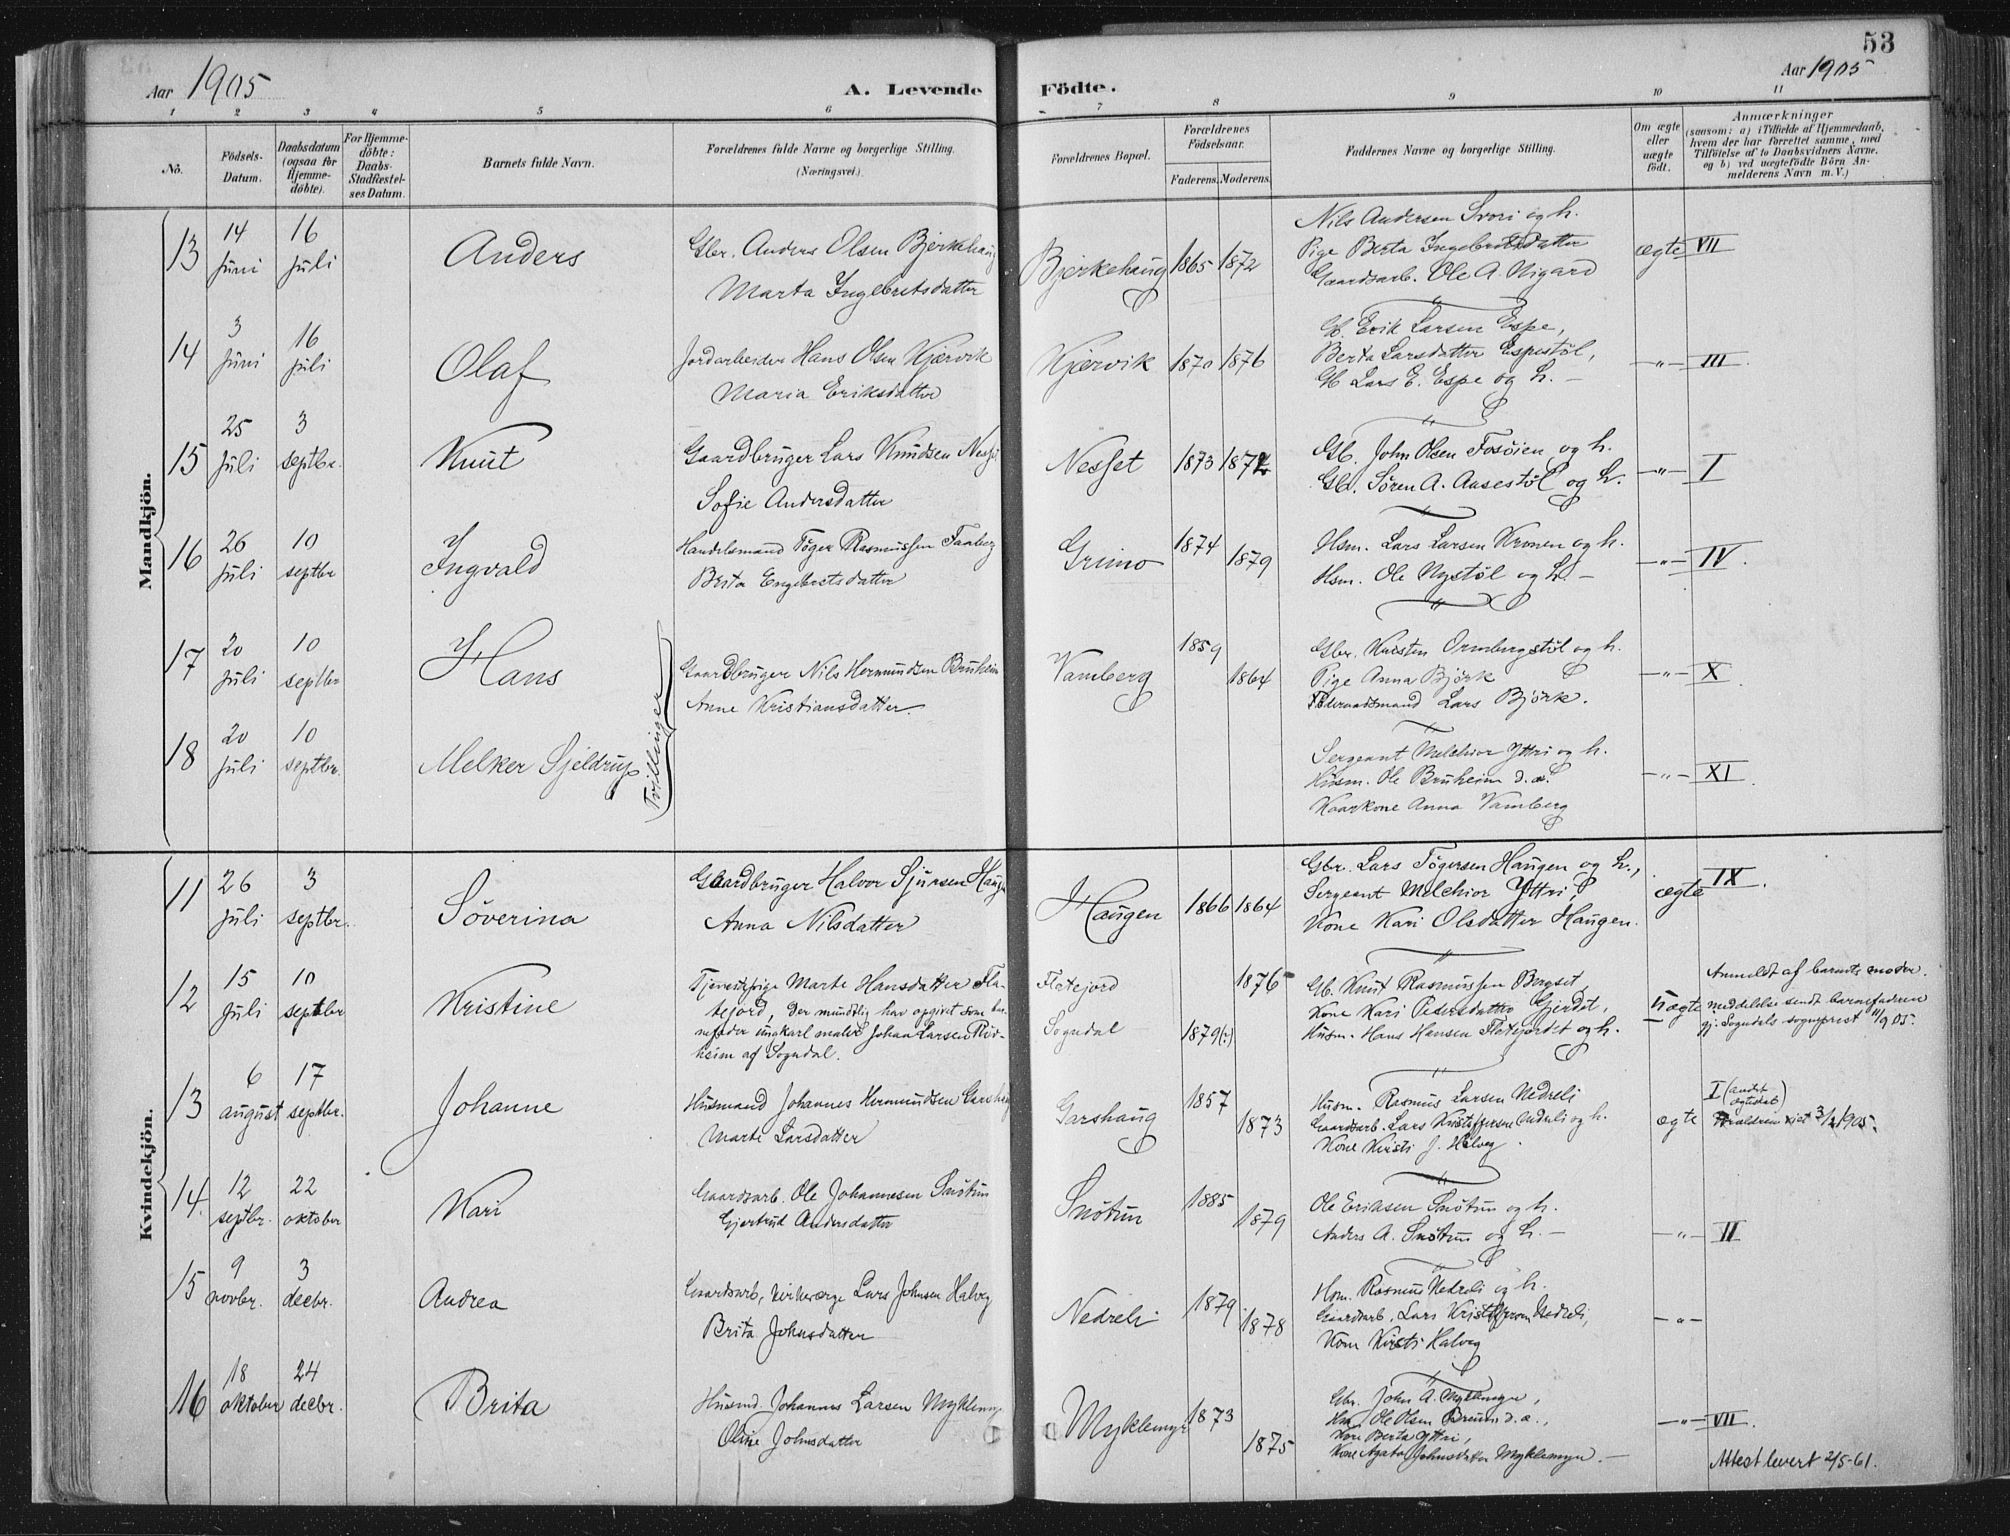 53
Aar 1905
A. Levende Födte.
Aar 1905
1 2 3 4 5 6 7 8 9 10 11
No.
Födsels-Datum.
Daabsdatum (ogsaa for Hjemme-döbte).
For Hjemme-döbte: Daabs-Stadfæstel-ses Datum.
Barnets fulde Navn.
Forældrenes fulde Navne og borgerlige Stilling. (Næringsvei.)
Forældrenes Bopæl.
Forældrenes Födselsaar.
Faderens. Moderens.
Faddernes Navne og borgerlige Stilling.
Om ægte eller uægte födt.
Anmærkninger
(saasom: a) i Tilfælde af Hjemmedaab,
hvem der har forrettet samme, med
Tilföielse af to Daabsvidners Navne.
og b) ved uægtefödte Börn An-
melderens Navn m. V.)
Mandkjön.
13 14 juni 16 juli Anders
Gbr. Anders Olsen Bjerkehaug
Marta Ingebretsdatter
Bjerkehaug 1865 1872
Nils Andersen Svori og h.
Pige Berta Ingebretsdatter
Gaardsarb. Ole A. Nigard
ægte VII
14 3 juni 16 juli Olaf
Jordarbeider Hans Olsen Kjærvik
Maria Eriksdatter
Kjærvik 1870 1876
Gb. Erik Larsen Espe,
Berta Larsdatter Espestöl,
Gb Lars E. Espe og h. -
-"- III
15 25 juli 3 septbr. Knut
Gaardbruger Lars Knudsen Nesse
Sofie Andersdatter
Nesset 1873 1872
Gb. John Olsen Fosöien og h.
Gb. Sören A. Aasestöl og h.
-"- I
16 26 juli 10 septbr Ingvald
Handelsmand Töger Rasmussen Faaberg
Berta Engebretsdatter
Grimo 1874 1879
Hsm. Lars Larsen Kronen og h.
Hsm. Ole Nystöl og h. -
-"- IV
17 20 juli 10 septbr Hans
Gaardbruger Nils Hermundsen Bruheim
Anne Kristiansdatter.
Tvillinger
Vamberg 1859 1864
Gbr. Karsten Ormbergstöl og h.
Pige Anna Björk
Lars Björk.
-"- X
18 20 juli 10 septbr. Melker Sjeldrup
Sergeant Melchior Yttri og h.
Husm. Ole Bruheim d.æ.
Kaarkone Anna Vamberg
-"- XI
Kvindekjön.
11 26 juli 3 septbr. Söverina
Gaardbruger Halvor Sjursen Haugen
Anna Nilsdatter
Haugen 1866 1864
Gbr. Lars Tögersen Haugen og h.,
Sergeant Melchior Yttri,
Kone Kari Olsdatter Haugen.
ægte IX
12 15 juli 10 septbr Kristine
Tjenestepige Marte Hansdatter Fla-
tejord, der mundtlig har opgivet som bar-
nefader ungkarl maler Johan Larsen
heim af Sogndal.
Flatejord 1876
Sogndal 1879(:)
Gb. Knut Rasmussen Bergset,
Kone Kari Pedersdatter Gjerdet,
Husm. Hans Hansen Flatejordet og h.
uægte
Anmeldt af barnets moder.
meddelelse sendt barnefaderen
gj. Sogndals sogneprest 11/9 05.
13 6 august 17 septbr. Johanne
Husmand Johannes Hermundsen Garshaug
Marte Larsdatter
Garshaug 1857 1873
Husm. Rasmus Larsen Nedreli
Gaardsarb. Lars Kristoffersen Nedreli og h.
Kone Kirsti J. Halveg.
ægte
I (andet ægteskab)
Forældrene viet 3/2 1905.
14. 12 septbr. 22 oktober Kari
Gaardsarb. Ole Johannesen Snötun
Gjertrud Andersdatter
Snötun 1885 1879
Ole Eriksen Snötun og h.
Anders A. Snötun og h. -
-"- II
15 9 novbr. 3 decbr. Andrea
Gaardsarb, kirkeværge Lars Johnsen Halveg
Brita Johnsdatter
Nedreli 1879 1878
Hsm. Rasmus Nedreli og h.
Gaardsarb. Lars Kristoffersen Nedreli,
Kone Kirsti Halveg
-"-
16 18 oktober 24 decbr. Brita
Husmd. Johannes Larsen Myklemyr
Oline Johnsdatter
Myklemyr 1873 1875
Gbr. John A. Myklemyr,
Hsm. Ole Olsen Bruum d.æ.,
Kone Berta Yttri,
Kone Agata Johnsdatter Myklemyr. -
-"- VII.
Attest levert 2/5-61.